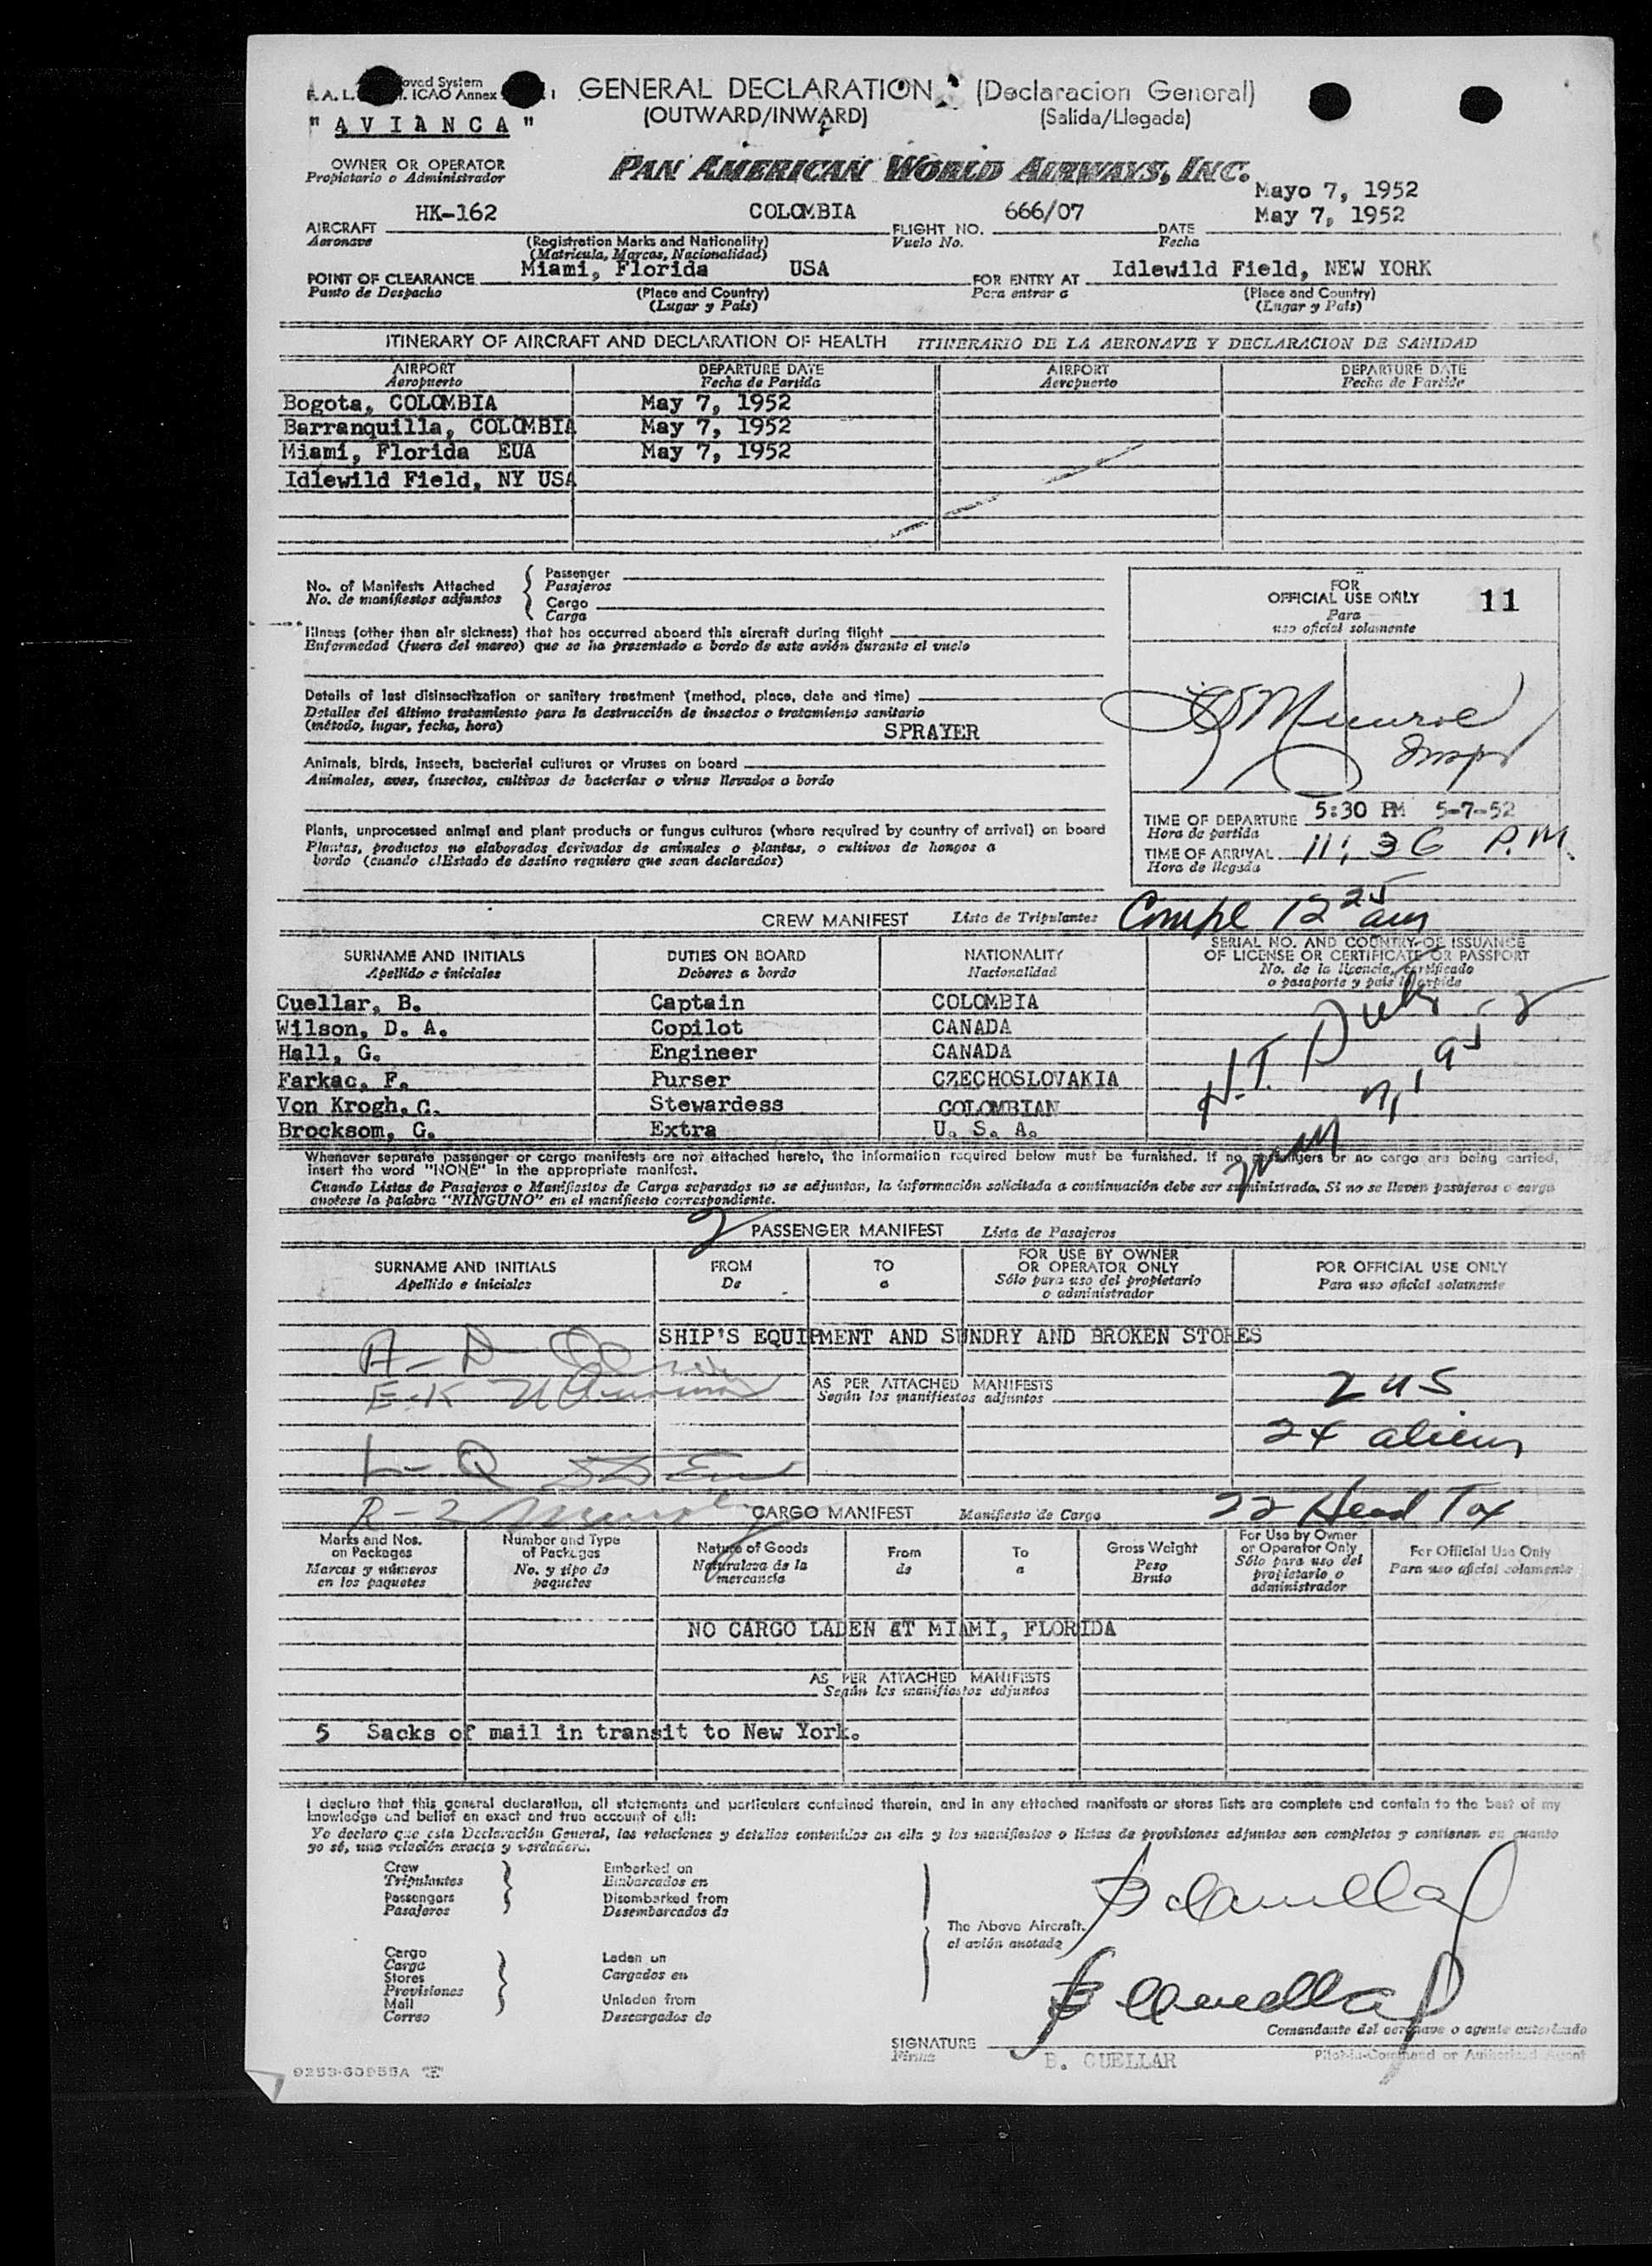 oved System
F. A. L. ICAO Annex 1
GENERAL DECLARATION (Declaracion General)
(OUTWARD/INWARD) (Salida/Llegada)
" A V I A N C A "
OWNER OR OPERATOR
Propietario o Administrador
PAN AMERICAN WORLD AIRWAYS, INC.
Mayo 7, 1952
AIRCRAFT HK-162 COLOMBIA FLIGHT NO. 666/07 DATE May 7, 1952
Aeronave (Registration Marks and Nationality) Vuelo No. Fecha
(Matricula, Marcas, Nacionalidad)
POINT OF CLEARANCE Miami, Florida USA FOR ENTRY AT Idlewild Field, NEW YORK
Punto de Despacho (Place and Country) Para entrar a (Place and Country)
(Lugar y País) (Lugar y País)
ITINERARY OF AIRCRAFT AND DECLARATION OF HEALTH ITINERARIO DE LA AERONAVE Y DECLARACION DE SANIDAD
AIRPORT DEPARTURE DATE AIRPORT DEPARTURE DATE
Aeropuerto Fecha de Partida Aeropuerto Fecha de Partida
Bogota, COLOMBIA May 7, 1952
Barranquilla, COLOMBIA May 7, 1952
Miami, Florida EUA May 7, 1952
Idlewild Field, NY USA
No. of Manifests Attached
No. de manifiestos adjuntos
Passenger
Pasajeros
Cargo
Carga
Illness (other than air sickness) that has occurred aboard this aircraft during flight
Enfermedad (fuera del mareo) que se ha presentado a bordo de este avión durante el vuelo
Details of last disinsectization or sanitary treatment (method, place, date and time)
Detalles del último tratamiento para la destrucción de insectos o tratamiento sanitario
(método, lugar, fecha, hora) SPRAYER
Animals, birds, insects, bacterial cultures or viruses on board
Animales, aves, insectos, cultivos de bacterias o virus llevados a bordo
Plants, unprocessed animal and plant products or fungus cultures (where required by country of arrival) on board
Plantas, productos no elaborados derivados de animales o plantas, o cultivos de hongos a
bordo (cuando elEstado de destino requiere que sean declarados)
FOR
OFFICIAL USE ONLY 11
Para
uso oficial solamente
Munroe
Inspr
TIME OF DEPARTURE 5:30 PM 5-7-52
Hora de partida
TIME OF ARRIVAL 11:36 P.M.
Hora de llegada
CREW MANIFEST Lista de Tripulantes Compl 12 25 am
SURNAME AND INITIALS DUTIES ON BOARD NATIONALITY SERIAL NO. AND COUNTRY OF ISSUANCE
OF LICENSE OR CERTIFICATE OR PASSPORT
Apellido e iniciales Deberes a bordo Nacionalidad No. de la licencia, certificado
o pasaporte y pais lo expide
Cuellar, B. Captain COLOMBIA
Wilson, D. A. Copilot CANADA
Hall, G. Engineer CANADA
Farkac, F. Purser CZECHOSLOVAKIA
Von Krogh, C. Stewardess COLOMBIAN
Brocksom, G. Extra U. S. A.
H.T.
Whenever separate passenger or cargo manifests are not attached hereto, the information required below must be furnished. If no passengers or no cargo are being carried,
insert the word "NONE" in the appropriate manifest.
Cuando Listas de Pasajeros o Manifiestos de Carga separados no se adjuntan, la información solicitada a continuación debe ser suministrada. Si no se lleven pasajeros o carga
anotese la palabra "NINGUNO" en el manifiesto correspondiente.
2 PASSENGER MANIFEST Lista de Pasajeros
SURNAME AND INITIALS FROM TO FOR USE BY OWNER
OR OPERATOR ONLY FOR OFFICIAL USE ONLY
Apellido e iniciales De a Sólo para uso del propietario
o administrador Para uso oficial solamente
SHIP'S EQUIPMENT AND SUNDRY AND BROKEN STORES
A - D
E-K
AS PER ATTACHED MANIFESTS
Según los manifiestos adjuntos
2 US
24 aliens
L - Q
R - Z
CARGO MANIFEST Manifiesto de Carga 22 Head Tax
Marks and Nos.
on Packages
Marcas y números
en los paquetes
Number and Type
of Packages
No. y tipo de
paquetes
Nature of Goods
Naturaleza de la
mercancia
From
de
To
a
Gross Weight
Peso
Bruto
For Use by Owner
or Operator Only
Sólo para uso del
propietario o
administrador
For Official Use Only
Para uso oficial solamente
NO CARGO LADEN AT MIAMI, FLORIDA
AS PER ATTACHED MANIFESTS
Según los manifiestos adjuntos
5 Sacks of mail in transit to New York.
I declare that this general declaration, all statements and particulars contained therein, and in any attached manifests or stores lists are complete and contain to the best of my
knowledge and belief an exact and true account of all:
Yo declaro que esta Declaración General, las relaciones y detalles contenidos en ella y los manifiestos o listas de provisiones adjuntos son completos y contienen en cuanto
yo sé, una relación exacta y verdadera.
Crew
Tripulantes
Passengers
Pasajeros
Embarked on
Embarcados en
Disembarked from
Desembarcados de
Cargo
Carga
Stores
Provisiones
Mail
Correo
Laden on
Cargados en
Unladen from
Descargados de
The Above Aircraft.
el avión anotado
B Cuellar
B Cuellar
Comandante del aeronave o agente autorizado
SIGNATURE
Firma
B. CUELLAR
Pilot-in-Command or Authorized Agent
9253-60955A